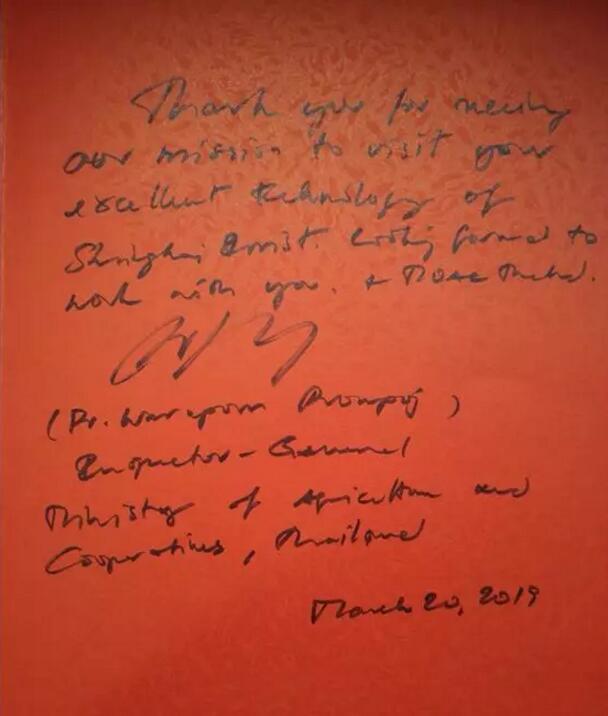 Thank you for
our mission to visit your
excellent technology of
Shanghai looking forward to
work with you. &
(Dr. Waraporn Prompoj)
Inspector-General
Ministry of Agriculture and
Cooperatives, Thailand
March 20, 2019